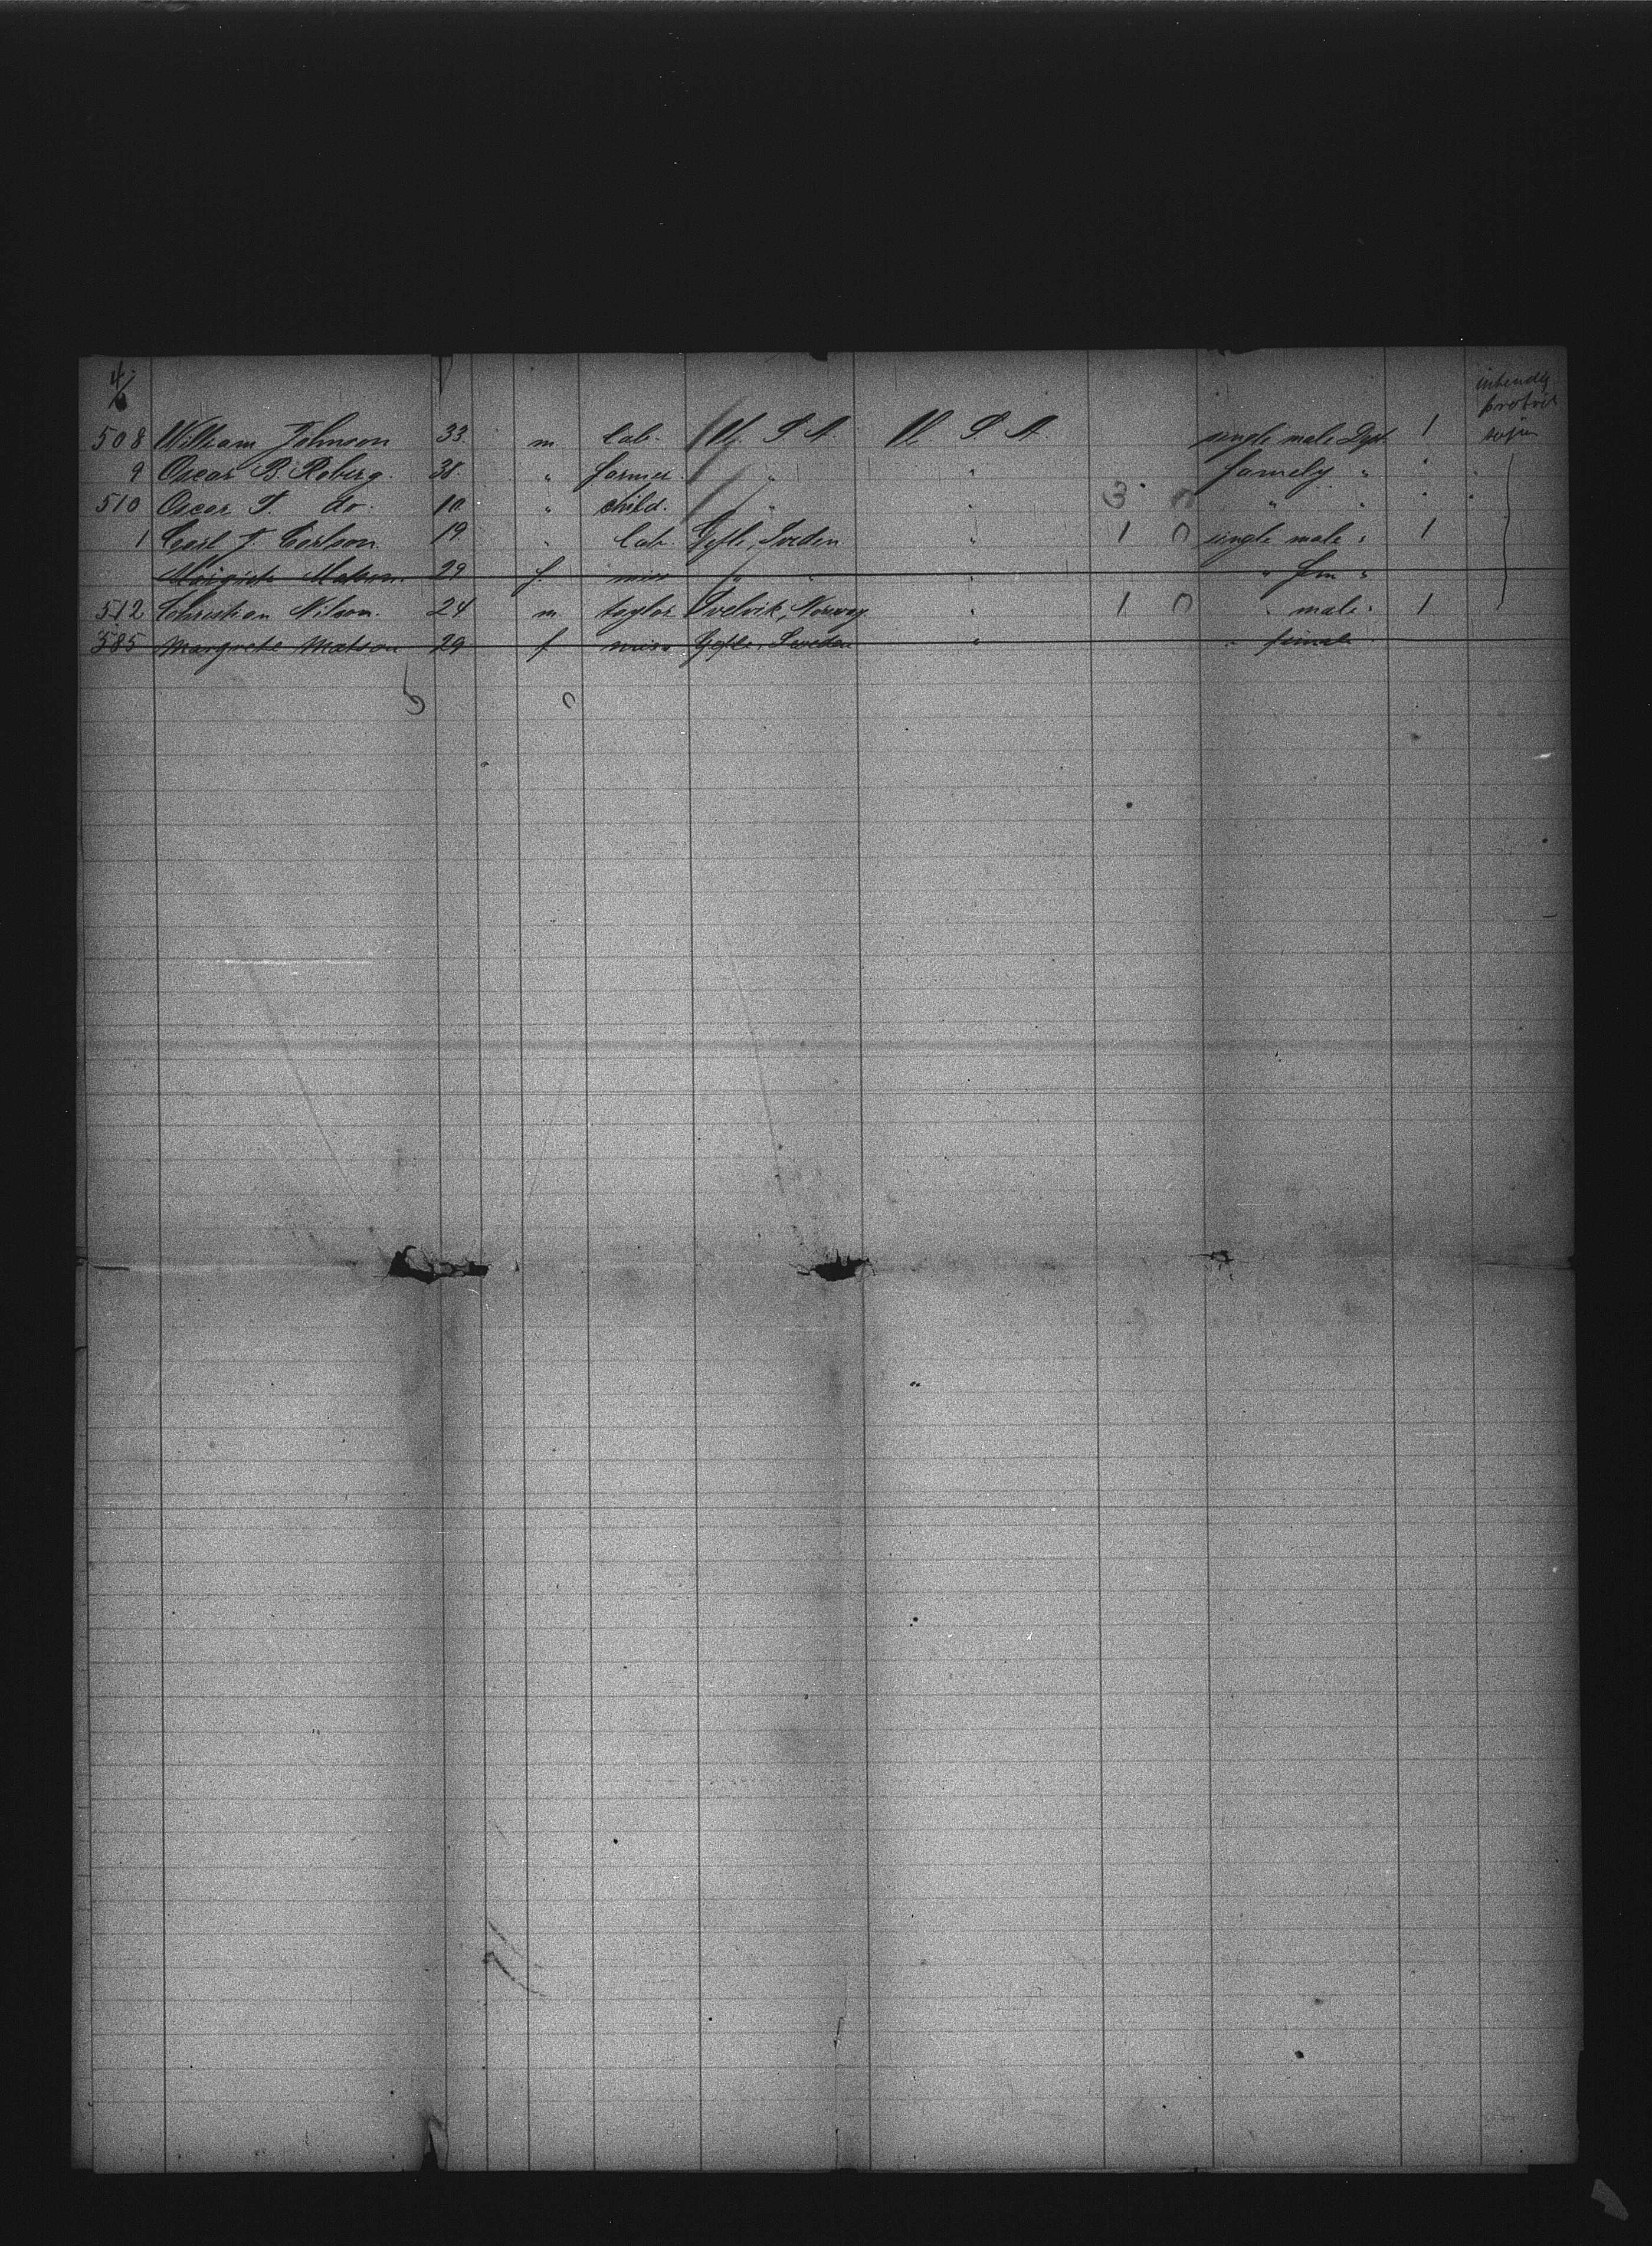 4/6
intendg
protrd
sojrn
508 William Johnson 33. m. lab. U. S. A. U. S. A. single male Dept. 1
9 Oscar B. Roberg. 38. " farmer. " " famely " " "
510 Oscar T. do. 10. " child. " " 3 0 " " " "
1 Carl J. Carlson. 19 " lab. Gefle, Sveden " 1 0 single male " 1
Margrete Matson. 29 f. miss " " " " fem "
512 Christian Nilson. 24 m. taylor Svelvik, Norway " 1 0 " male " 1
585 Margrete Matson 29 f miss Gefle, Sweden " " female
5 0